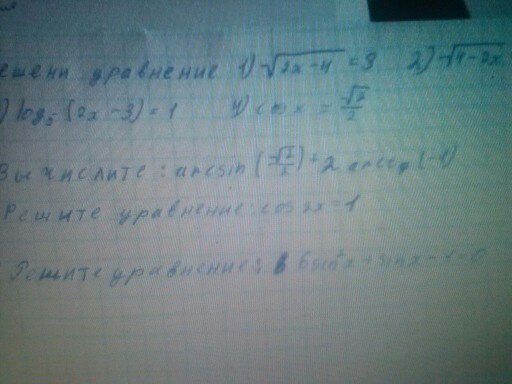 ешени уравнение 1) √(2x-4) = 9 2) √(1-2x)
) log₅(2x-3)=1 4) cos x = √2/2
Вычислите: arcsin(√2/2)+2 arcctg(-1)
Решите уравнение: cos2x=1
Решите уравнение: 6sin²x+sinx-1=0